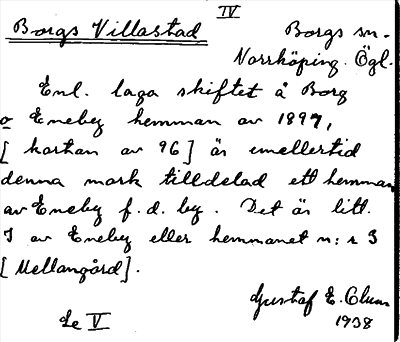 IV
Borgs Villastad Borgs sn.
Norrköping. Ögl.
Enl. laga skiftet å Borg
o Eneby hemman av 1897,
[kartan av 96] är emellertid
denna mark tilldelad ett hemman
av Eneby f.d. by. Det är litt.
I av Eneby eller hemmanet n:r 3
[Mellangård].
Gustaf E. Clum
Se V 1938